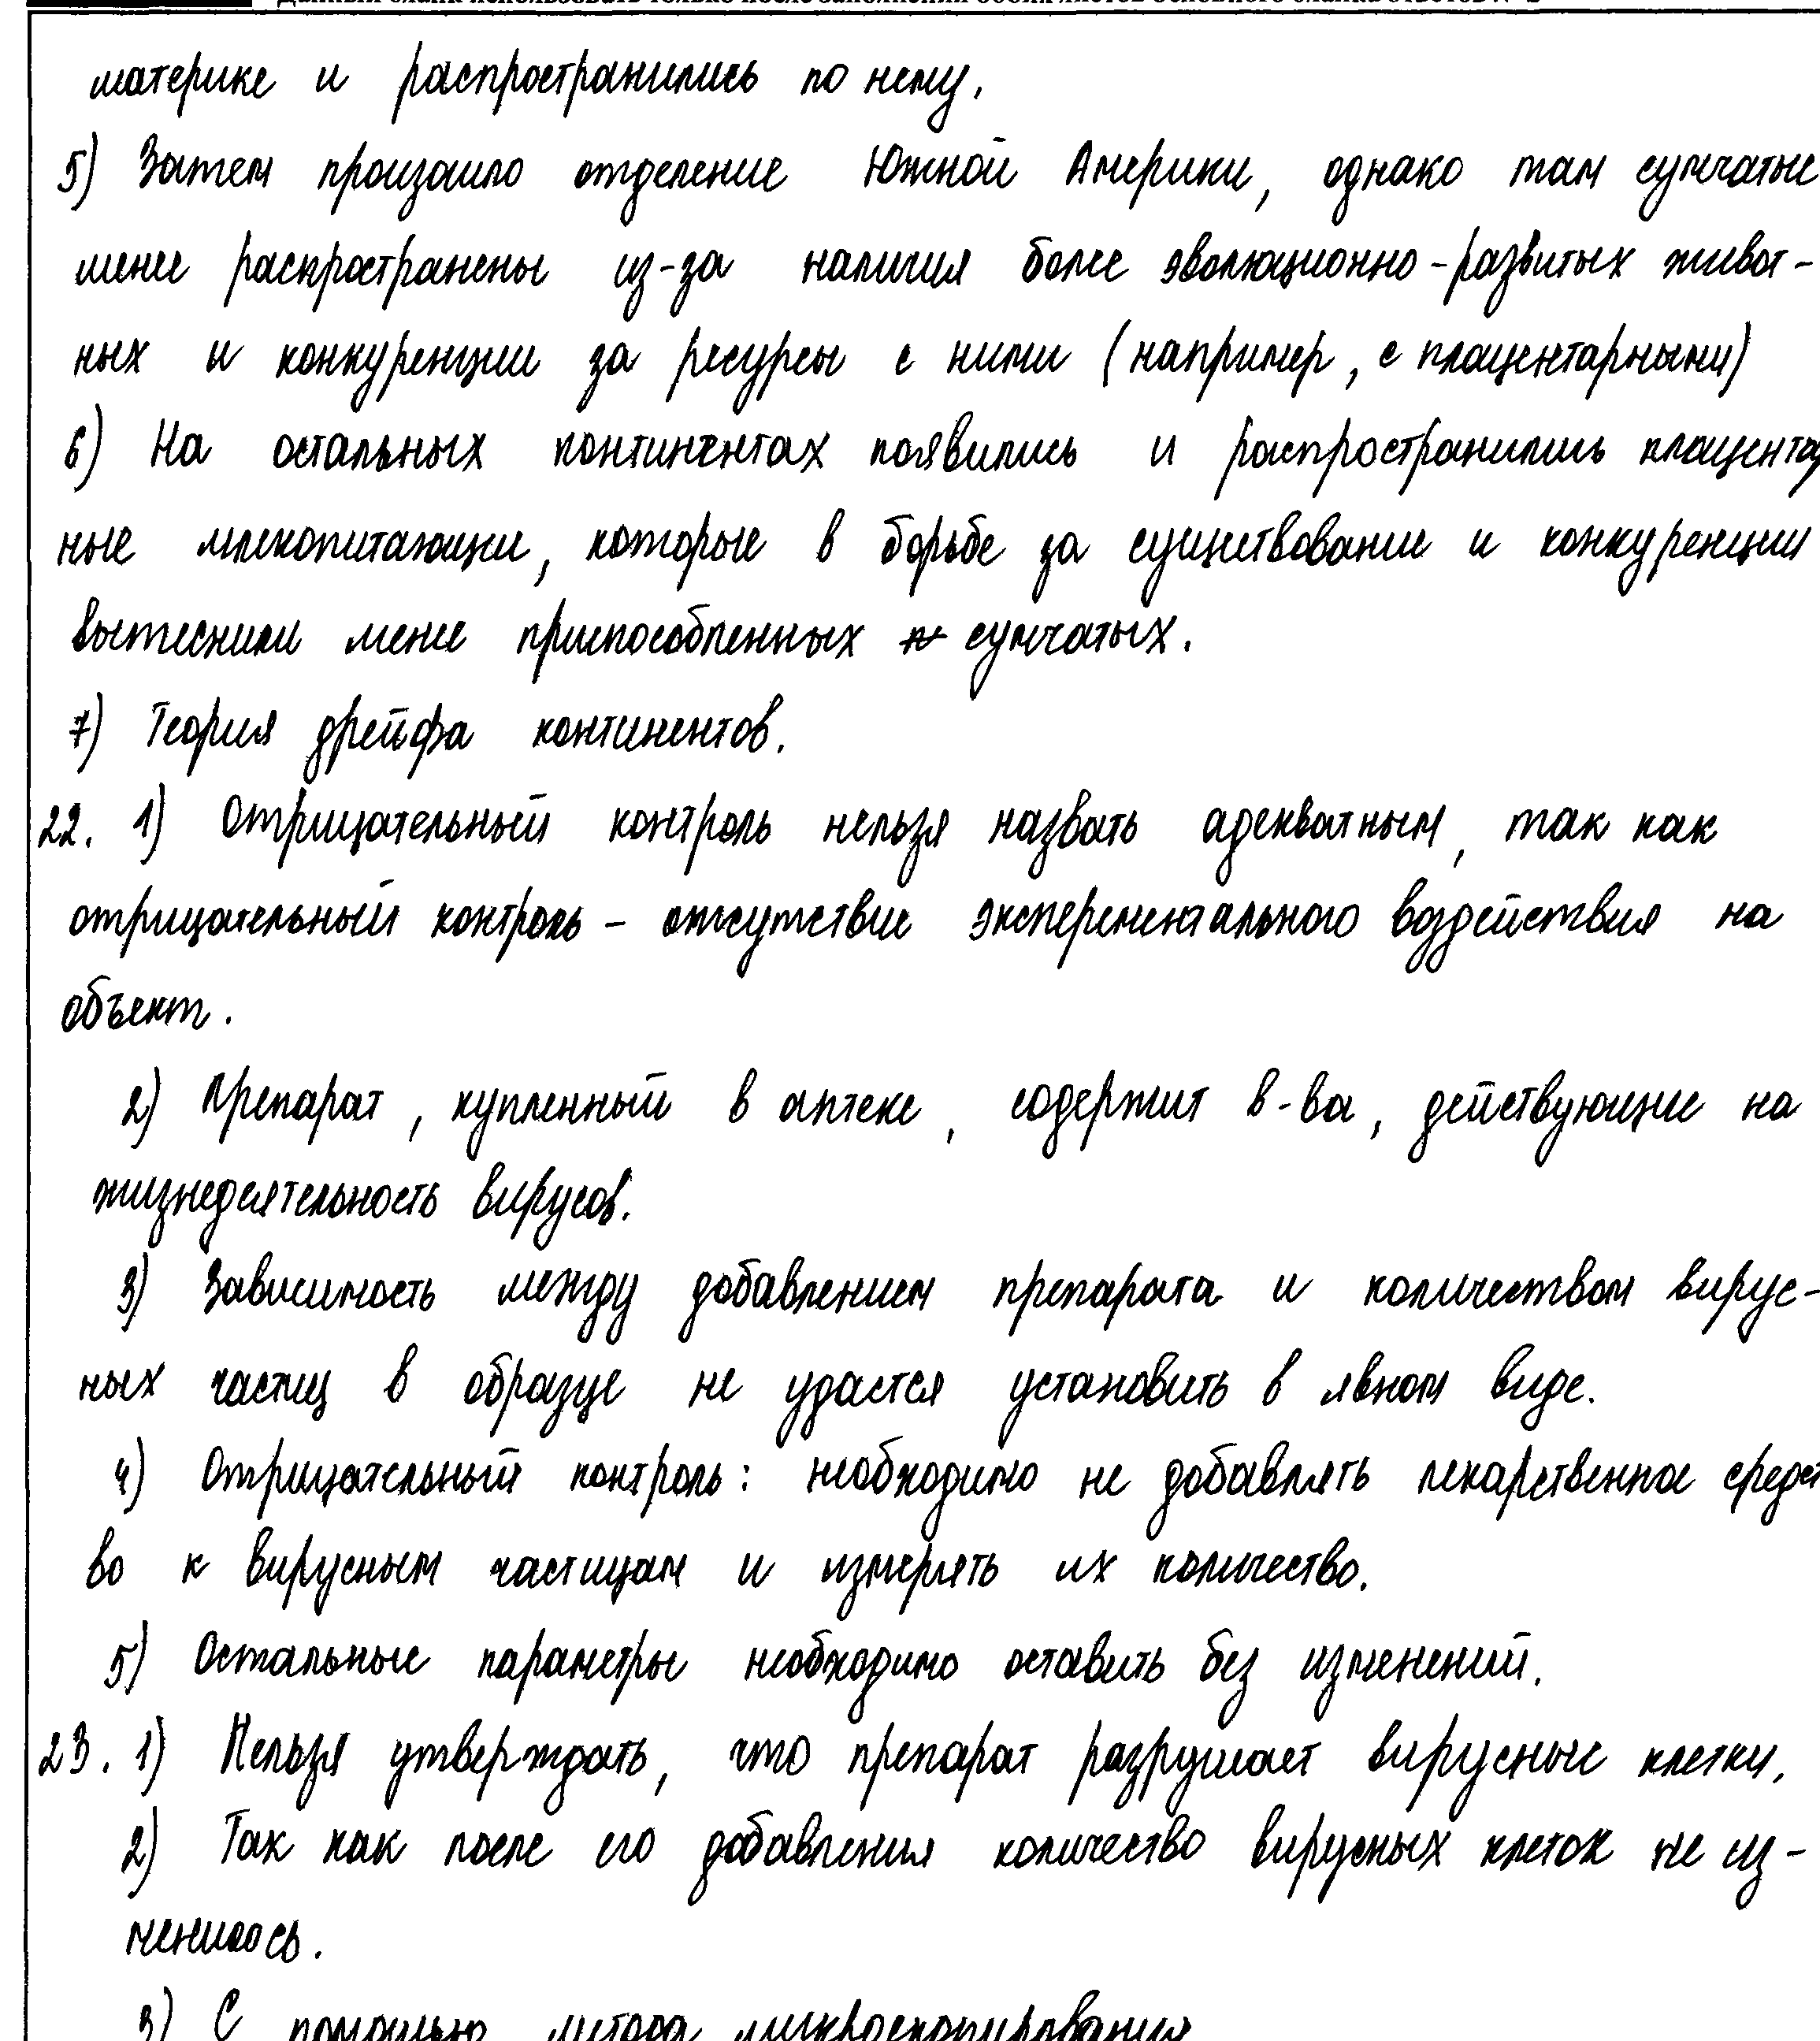 Данный бланк использовать только после заполнения обеих листов основного бланка ответов № 2
материке и распространились по нему.
5) Затем произошло отделение Южной Америки, однако там сумчатые
менее распространены из-за наличия более эволюционно-развитых живот-
ных и конкуренции за ресурсы с ними (например, с плацентарными)
6) На остальных континентах появились и распространились плацентар
ные млекопитающие, которые в борьбе за существование и конкуренции
вытеснили менее приспособленных сумчатых.
7) Теория дрейфа континентов.
22. 1) Отрицательный контроль нельзя назвать адекватным, так как
отрицательный контроль - отсутствие эксперементального воздействия на
объект.
2) Препарат, купленный в аптеке, содержит в-ва, действующие на
жизнедеятельность вирусов.
3) Зависимость между добавлением препарата и количеством вирус-
ных частиц в образце не удастся установить в явном виде.
4) Отрицательный контроль: необходимо не добавлять лекарственное средст
во к вирусным частицам и измерять их количество.
5) Остальные параметры необходимо оставить без изменений.
23. 1) Нельзя утверждать, что препарат разрушает вирусные клетки.
2) Так как после его добавления количество вирусных клеток не из-
менилось.
3) С помощью метода микроскопирования